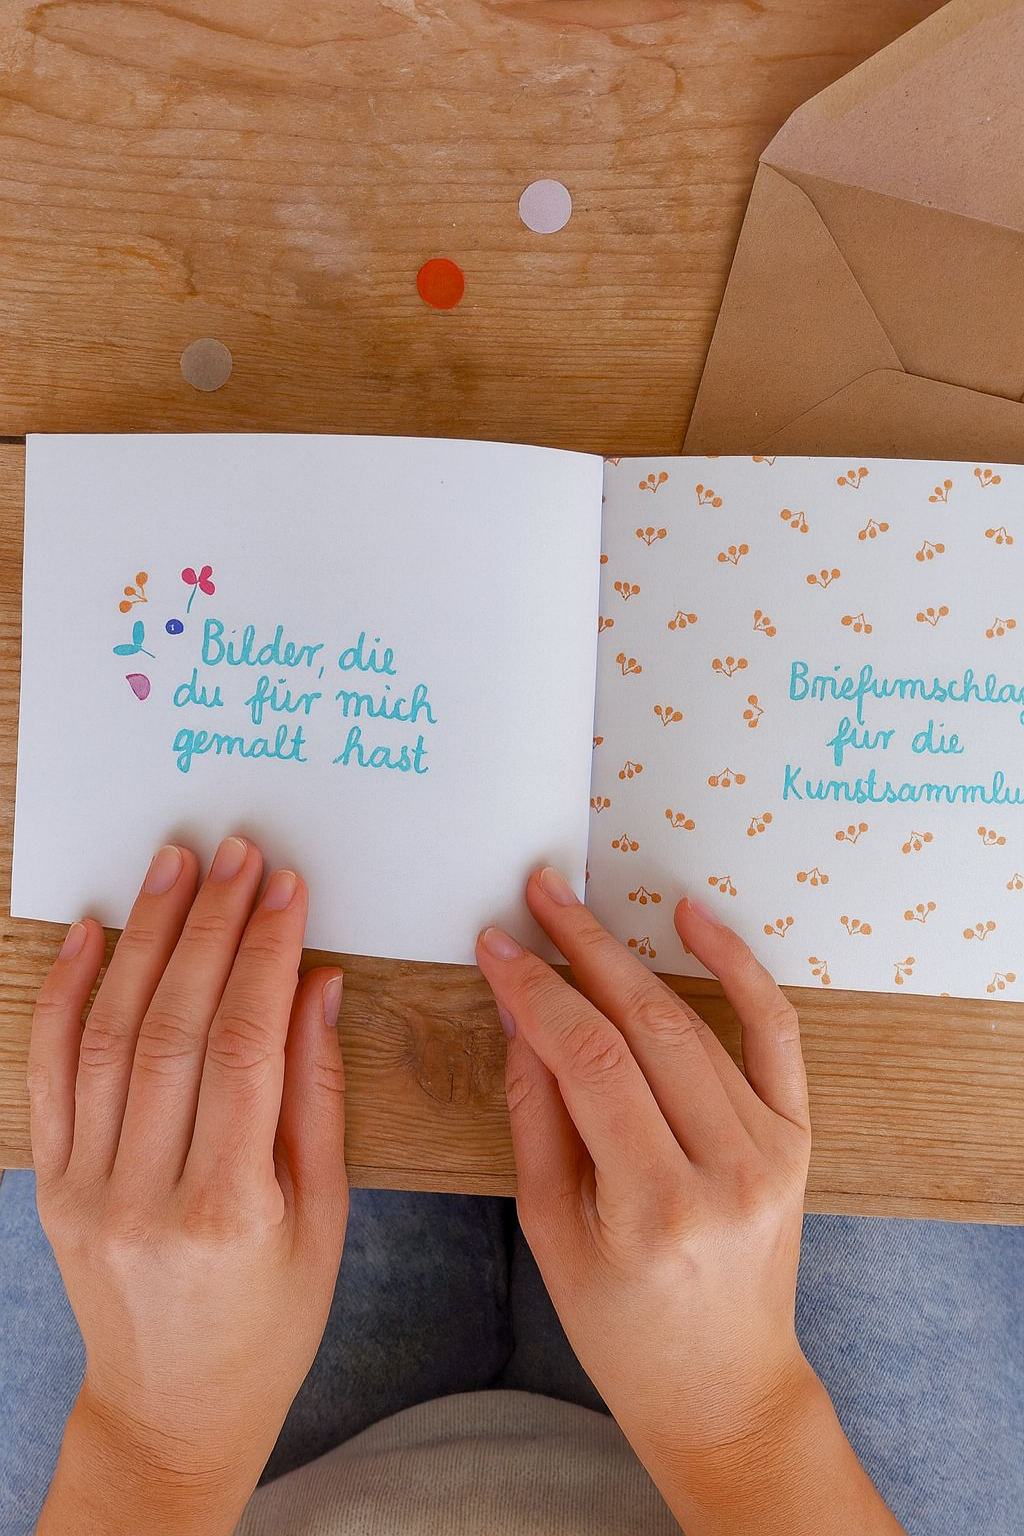 Bilder, die
du für mich
gemalt hast
Briefumschlag
für die
Kunstsammlu